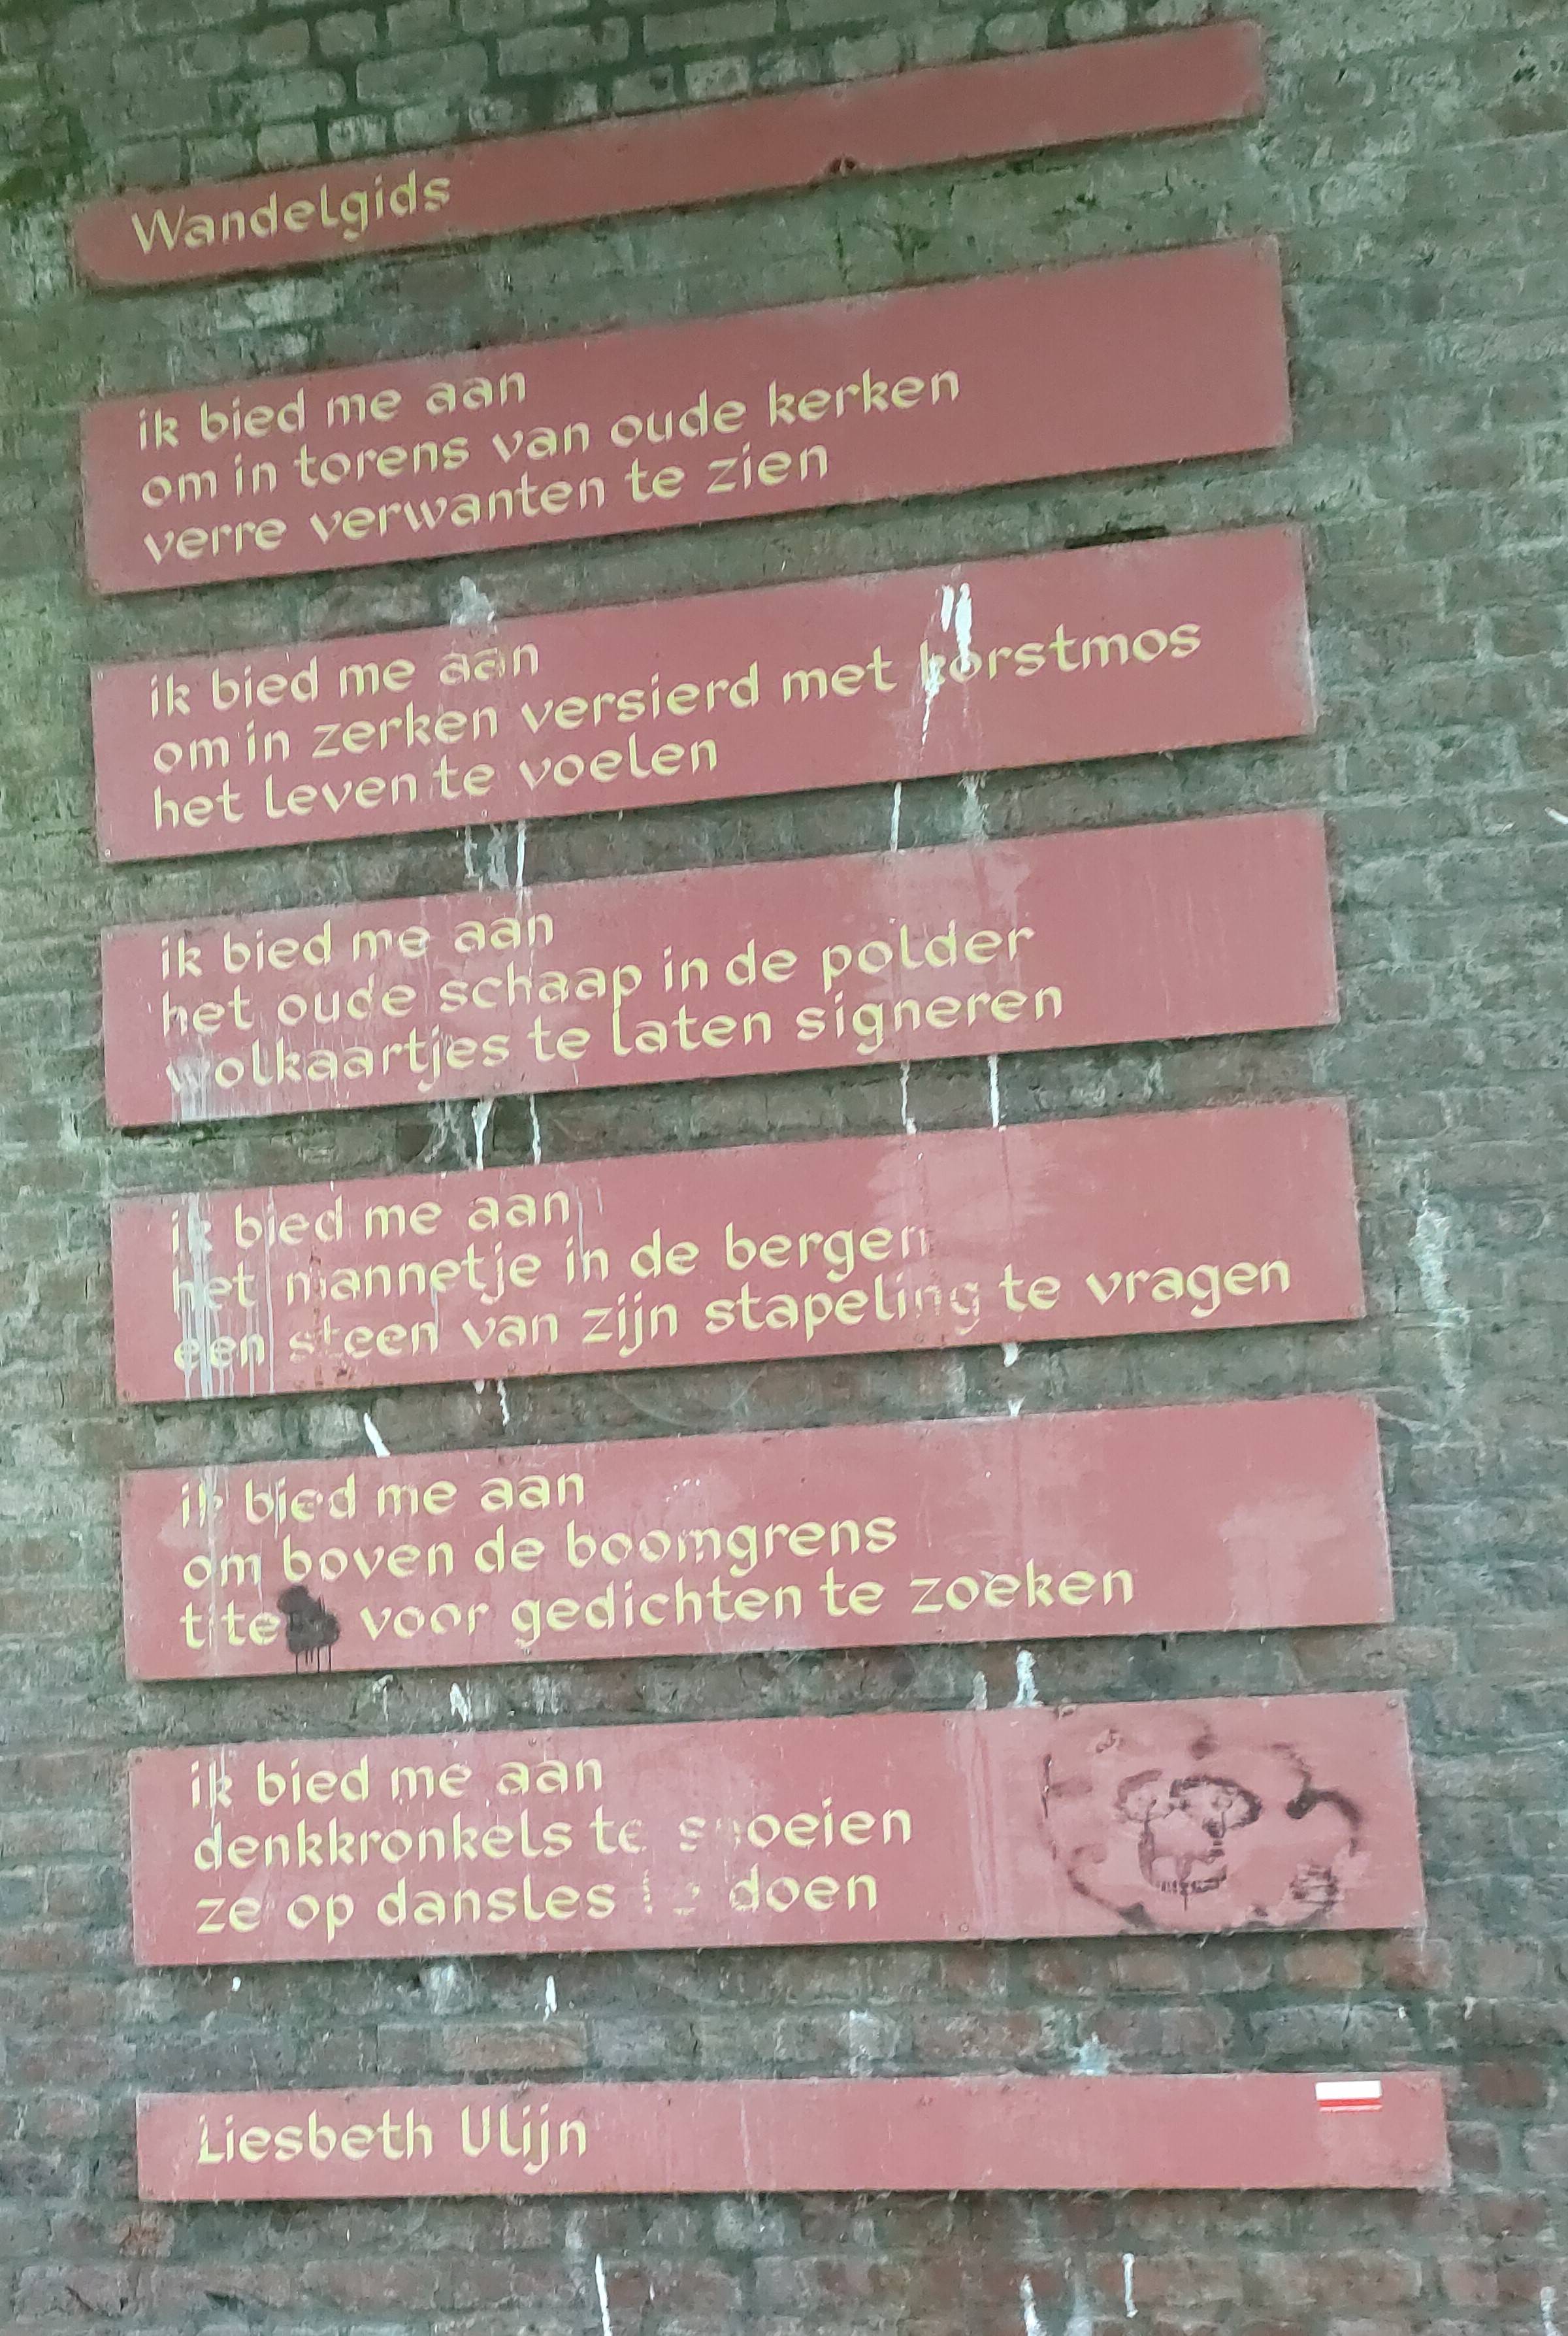 Wandelgids
ik bied me aan
om in torens van oude kerken
verre verwanten te zien
ik bied me aan
om in zerken versierd met korstmos
het leven te voelen
ik bied me aan
het oude schaap in de polder
wolkaartjes te laten signeren
ik bied me aan
het mannetje in de bergen
een steen van zijn stapeling te vragen
ik bied me aan
om boven de boomgrens
voor gedichten te zoeken
ik bied me aan
denkkronkels te snoeien
ze op dansles te doen
Liesbeth Ulijn